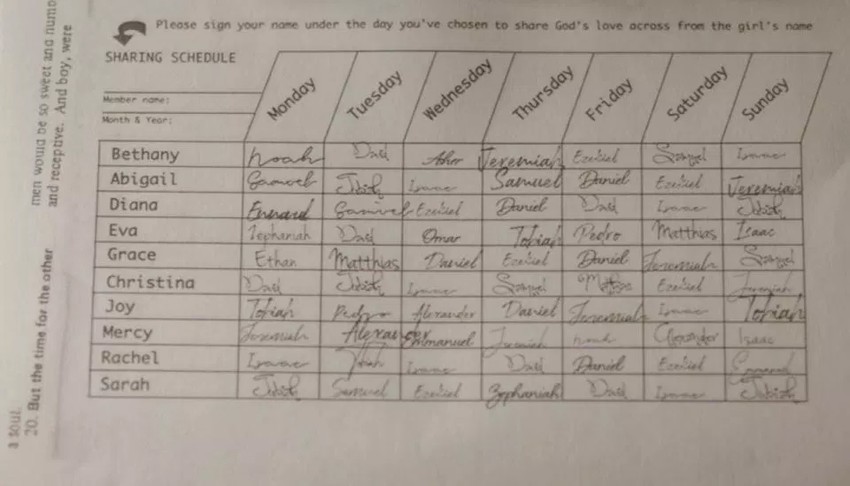 Please sign your name under the day you've chosen to share God's love across from the girl's name
SHARING SCHEDULE
Member name:
Month & Year:
Monday Tuesday Wednesday Thursday Friday Saturday Sunday
Bethany Noah Jeremiah Ezekiel Samuel Isaac
Abigail Samuel Isaac Samuel Daniel Ezekiel Jeremiah
Diana Samuel Ezekiel Daniel Isaac
Eva Zephaniah Omar Tobiah Pedro Matthias Isaac
Grace Ethan Matthias Daniel Ezekiel Daniel Jeremiah Samuel
Christina Isaac Samuel Ezekiel Jeremiah
Joy Tobiah Pedro Alexander Daniel Jeremiah Isaac Tobiah
Mercy Jeremiah Alexander Emmanuel Jeremiah Noah Alexander Isaac
Rachel Isaac Isaac Daniel Ezekiel
Sarah Samuel Ezekiel Zephaniah Isaac
men would be so sweet and
and receptive. And boy, were
20. But the time for the other
a soul.